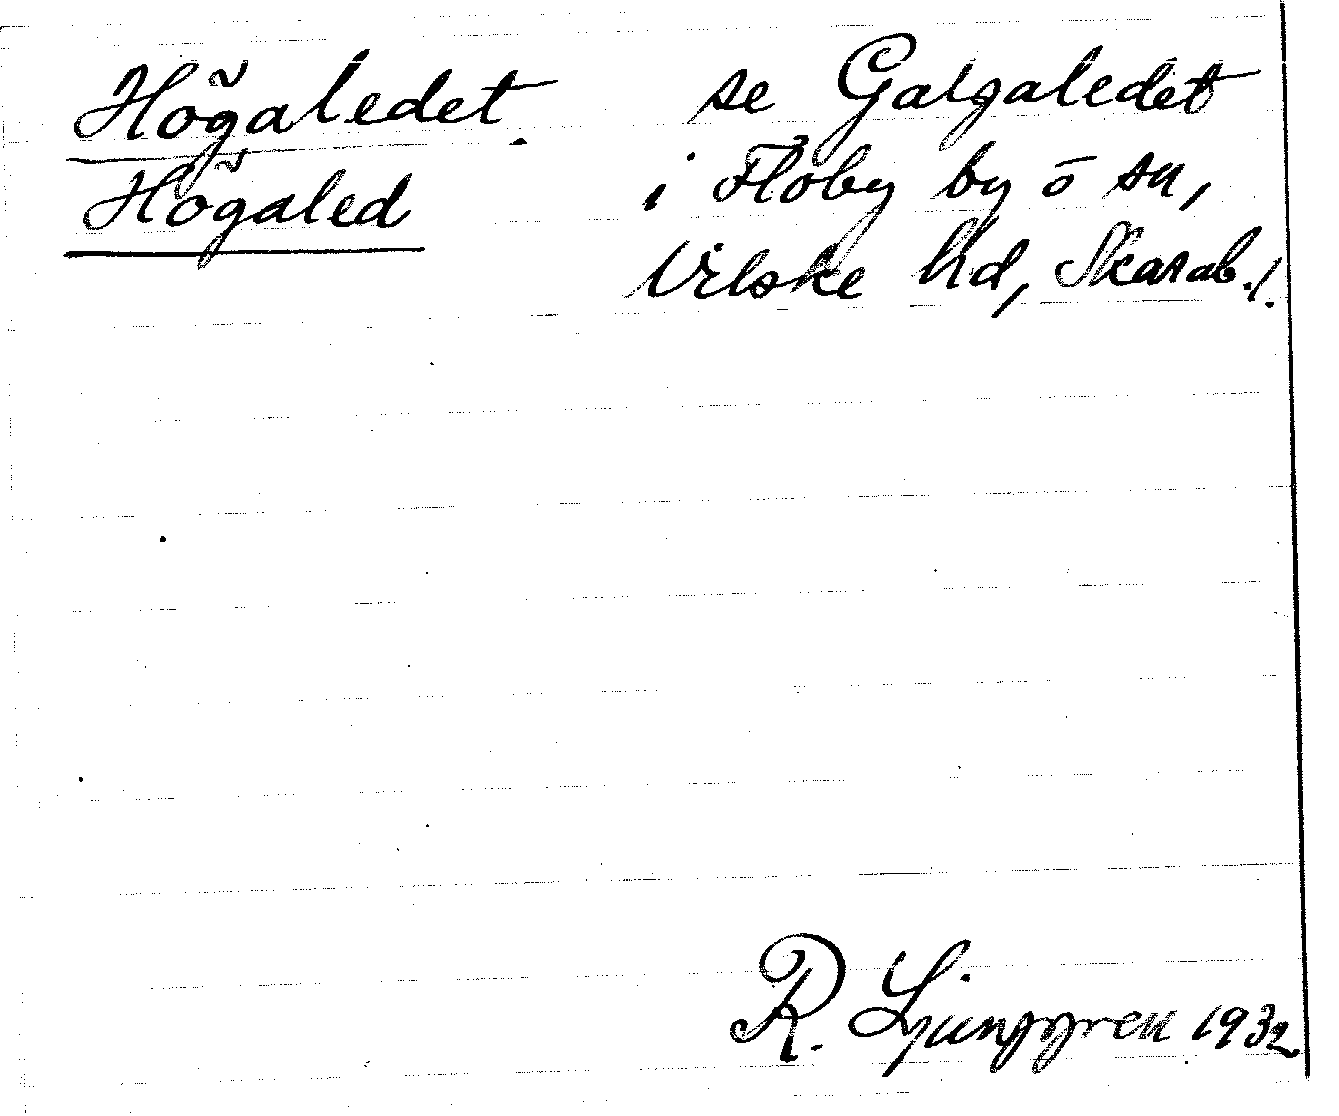 Högaledet. se Galgaledet
Högaled i Floby by o sn,
Vilske hd, Skarab. l.
R. Ljunggren 1932